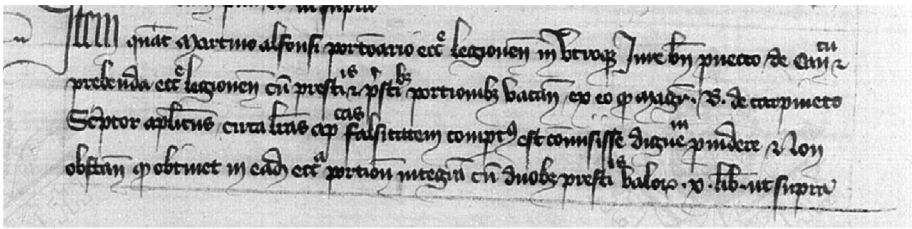 ut supra
Item quat Martino alfonsi portoario ecce legionen in utroque Jure bn prouecto de Can tu et
prebenda ecce legionen cu presti is et psti portionibz vacan ex eo qp magr. B. de carpineto
Scptor aplicus circa lras ap cas falsitatem comptus est comisisse digne in prouidere Non
obstan qp obtinet in ead ecca portion integra cu duobz presti is valor. x. lib. ut supra